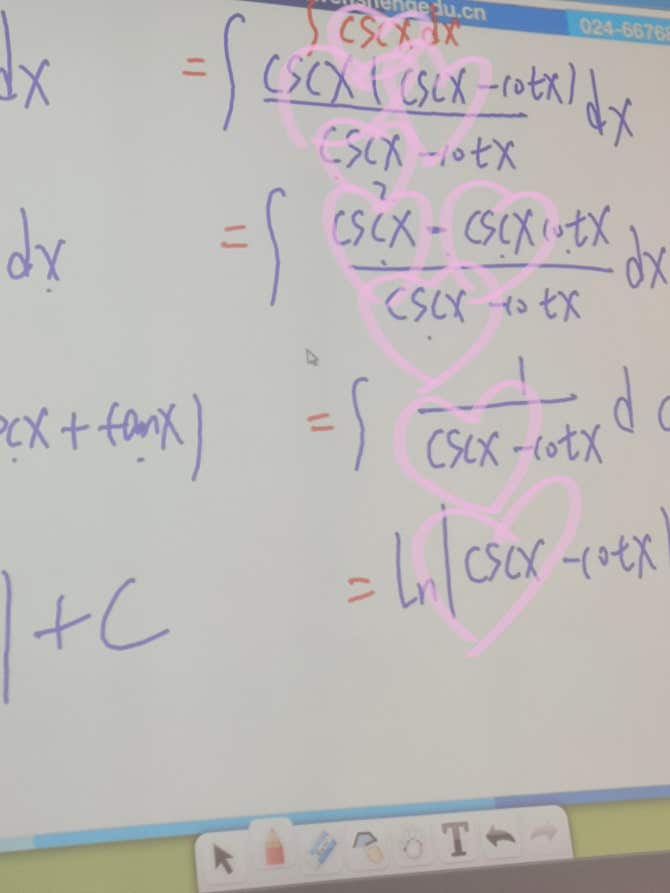 engedu.cn
024-6676
∫ cscx dx
dx = ∫ cscx(cscx-cotx)/cscx-cotx dx
dx = ∫ csc²x - cscxcotx/cscx-cotx dx
cx + tanx) = ∫ 1/cscx-cotx d
| + C = ln|cscx-cotx|
T